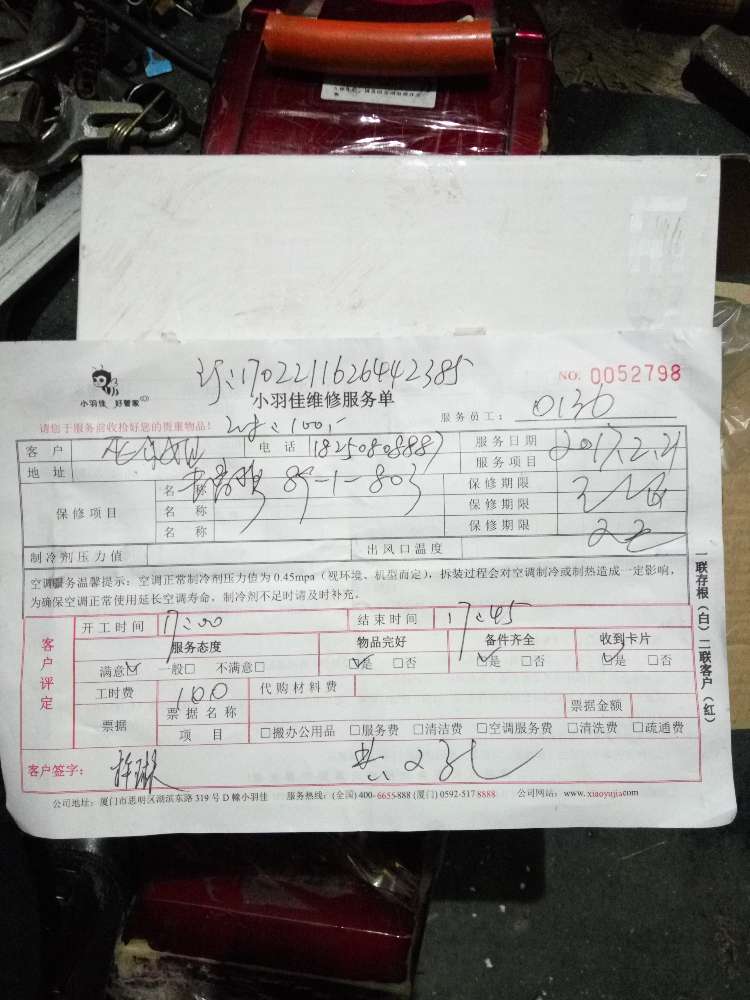 17022116264442385
小羽佳 好管家
小羽佳维修服务单
NO. 0052798
请您于服务前收检好您的贵重物品!
服务员工: 0136
客户
电话 18250808887
服务日期 2017.2.21
服务项目
地址
89-1-803
保修项目
名称
保修期限
名称
保修期限
名称
保修期限
制冷剂压力值
出风口温度
空调服务温馨提示:空调正常制冷剂压力值为 0.45mpa(视环境、机型而定),拆装过程会对空调制冷或制热造成一定影响,
为确保空调正常使用延长空调寿命,制冷剂不足时请及时补充。
一联存根(白)二联客户(红)
客户评定
开工时间 17:00
结束时间 17:45
服务态度
物品完好
备件齐全
收到卡片
满意☑ 一般□ 不满意□
☑是 □否
☑是 □否
☑是 □否
工时费 100
代购材料费
票据
票据名称
票据金额
项目
□搬办公用品 □服务费 □清洁费 □空调服务费 □清洗费 □疏通费
客户签字:
共2孔
公司地址:厦门市思明区湖滨东路 319 号 D 幢小羽佳 服务热线:(全国)400-6655-888 (厦门) 0592-517 8888 公司网站:www.xiaoyujia.com